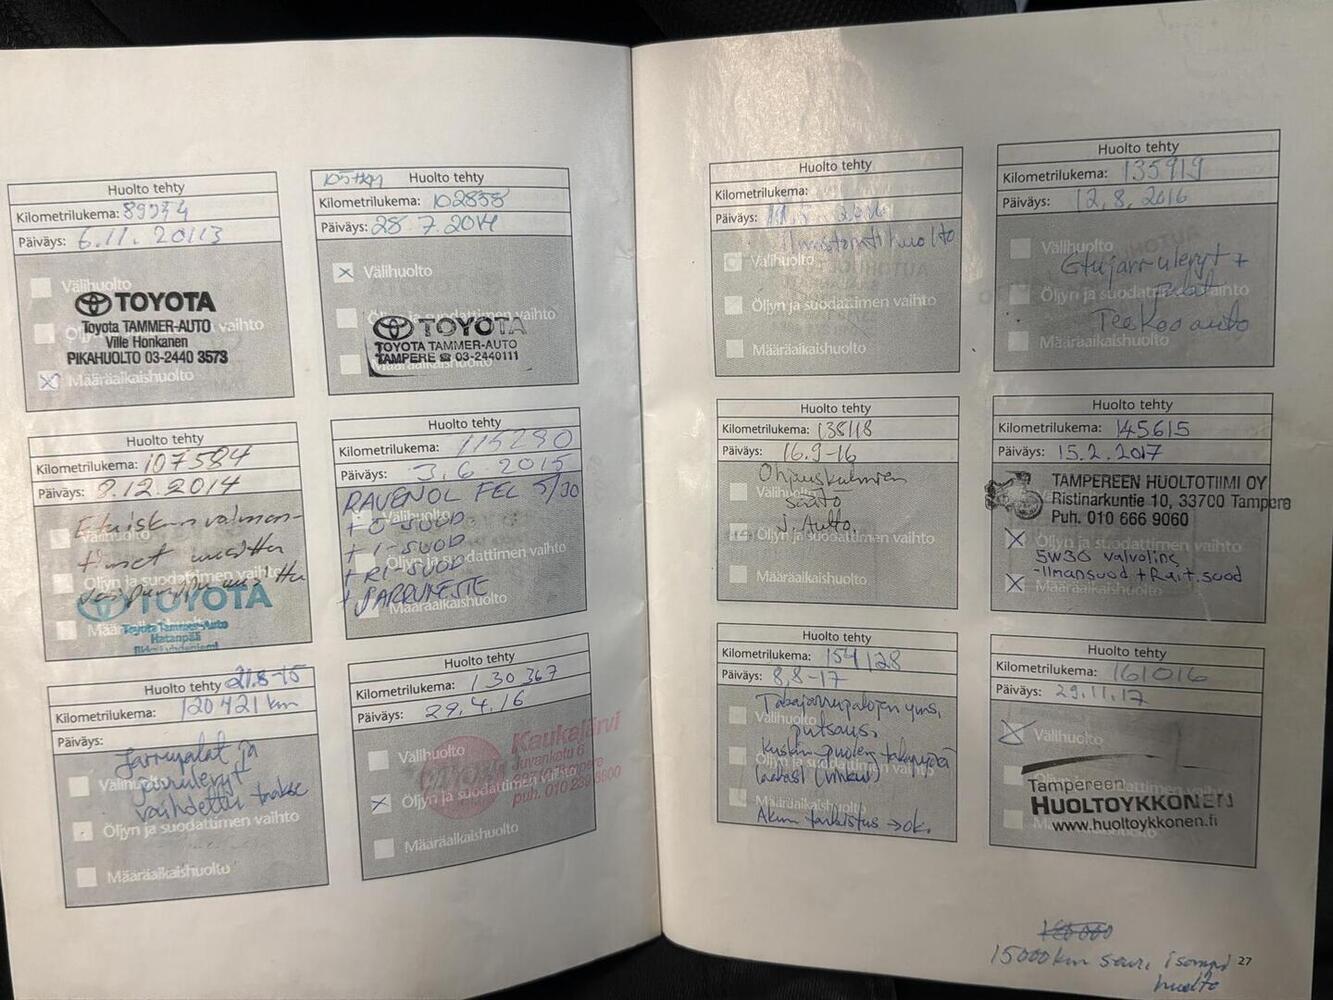 Huolto tehty
Kilometrilukema: 89934
Päiväys: 6.11.20113
Välihuolto
TOYOTA
Toyota TAMMER-AUTO
Ville Honkanen
PIKAHUOLTO 03-2440 3573
Määräaikaishuolto
Huolto tehty
Kilometrilukema: 102838
Päiväys: 28 7.2014
Välihuolto
TOYOTA
TOYOTA TAMMER-AUTO
TAMPERE ☎ 03-2440111
Määräaikaishuolto
Huolto tehty
Kilometrilukema: 107584
Päiväys: 8.12.2014
Välihuolto
Öljyn ja suodattimen vaihto
TOYOTA
Toyota Tammer-Auto
Hatanpää
Huolto tehty
Kilometrilukema: 115290
Päiväys: 3.6.2015
RAVENOL FEL 5/30
Välihuolto
+ Ö-SUOD
+ I-SUOD
Öljyn ja suodattimen vaihto
+ RI-SUOD
+ JARRUNESTE
Määräaikaishuolto
Huolto tehty 21.8-15
Kilometrilukema: 120421 km
Päiväys:
Jarrupalat ja
jarrulevyt
Välihuolto
vaihdettu taakse
Öljyn ja suodattimen vaihto
Määräaikaishuolto
Huolto tehty
Kilometrilukema: 130367
Päiväys: 29.4.16
Välihuolto
Kaukajärvi
Juvankatu 6
Öljyn ja suodattimen vaihto
Määräaikaishuolto
Huolto tehty
Kilometrilukema:
Päiväys:
Ilmastointihuolto
Välihuolto
Öljyn ja suodattimen vaihto
Määräaikaishuolto
Huolto tehty
Kilometrilukema: 135919
Päiväys: 12.8.2016
Välihuolto
Etujarrulevyt +
palat
Öljyn ja suodattimen vaihto
TeeKoo auto
Määräaikaishuolto
Huolto tehty
Kilometrilukema: 138118
Päiväys: 16.9-16
Ohjauskulmien
Välihuolto
säätö
Öljyn ja suodattimen vaihto
Määräaikaishuolto
Huolto tehty
Kilometrilukema: 145615
Päiväys: 15.2.2017
TAMPEREEN HUOLTOTIIMI OY
Ristinarkuntie 10, 33700 Tampere
Puh. 010 666 9060
Öljyn ja suodattimen vaihto
5W30 valvoline
-Ilmansuod + Rait.suod
Määräaikaishuolto
Huolto tehty
Kilometrilukema: 154128
Päiväys: 8.8-17
Takajarrupalojen yms.
Välihuolto
putsaus.
Kuskin puolen takapyörä
Öljyn ja suodattimen vaihto
Määräaikaishuolto
Akun tarkistus → ok.
Huolto tehty
Kilometrilukema: 161016
Päiväys: 29.11.17
Välihuolto
Tampereen
HUOLTOYKKÖNEN
www.huoltoykkonen.fi
15000km seur. isompi
huolto
27